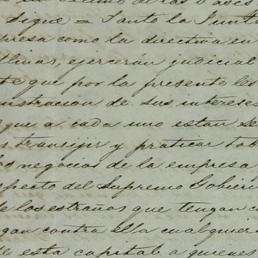 Sigue = Tanto la Junta
presa como la directiva en
ellinas, ejercerán judicial
te que por la presente les
nistracion de sus intereses
que a cada uno estan se
transijir y praticar tod
negocios de la empresa
specto del Supremo Gobier
de los estraños que tengan c
gan contra Ella cualquier
de esta capital a quienes